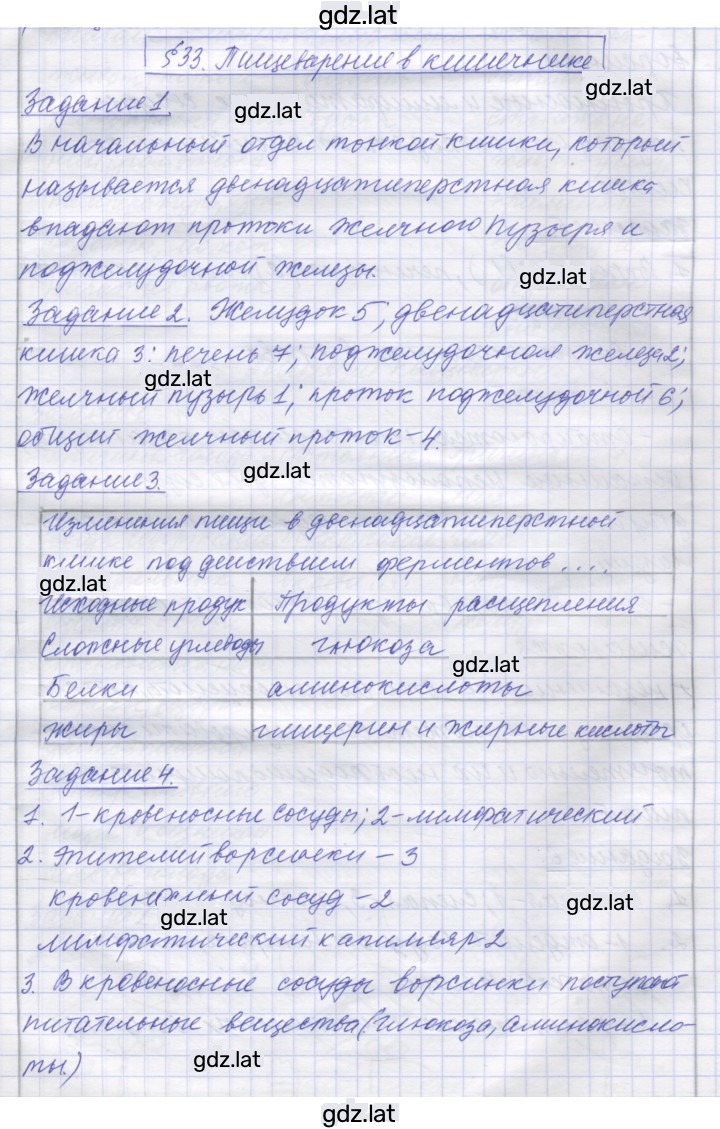 gdz.lat
§33. Пищеварение в кишечнике
gdz.lat
Задание 1.
gdz.lat
В начальный отдел тонкой кишки, который
называется двенадцатиперстная кишка
впадают протоки желчного пузыря и
поджелудочной железы.
gdz.lat
Задание 2. Желудок 5; двенадцатиперстная
кишка 3: печень 7; поджелудочная железа 2;
gdz.lat
желчный пузырь 1; проток поджелудочной 6;
общий желчный проток-4.
gdz.lat
Задание 3.
Изменения пищи в двенадцатиперстной
кишке под действием ферментов....
gdz.lat
Исходные продук Продукты расщепления
Сложные углеводы глюкоза
gdz.lat
Белки аминокислоты
жиры глицерин и жирные кислоты
Задание 4.
1. 1-кровеносные сосуды; 2-лимфатический
2. Эпителий ворсинки - 3
кровеносный сосуд - 2
gdz.lat
gdz.lat
лимфатический капилляр 2
3. В кровеносные сосуды ворсинки поступают
питательные вещества (глюкоза, аминокисло-
ты.)
gdz.lat
gdz.lat